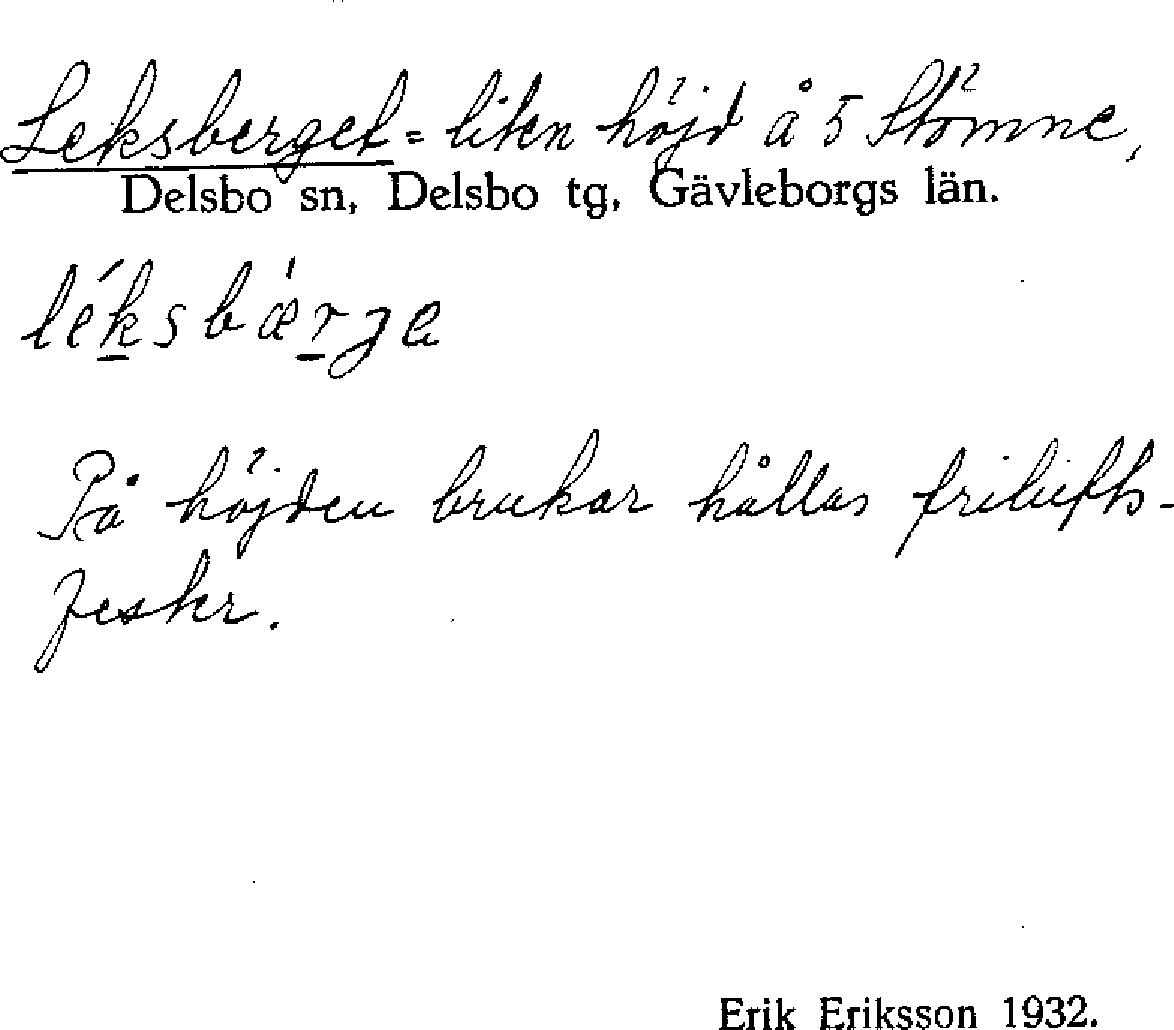 Leksberget = liten höjd å 5 Stömne,
Delsbo sn, Delsbo tg, Gävleborgs län.
léksbǽrge
På höjden brukar hållas frilufts-
fester.
Erik Eriksson 1932.